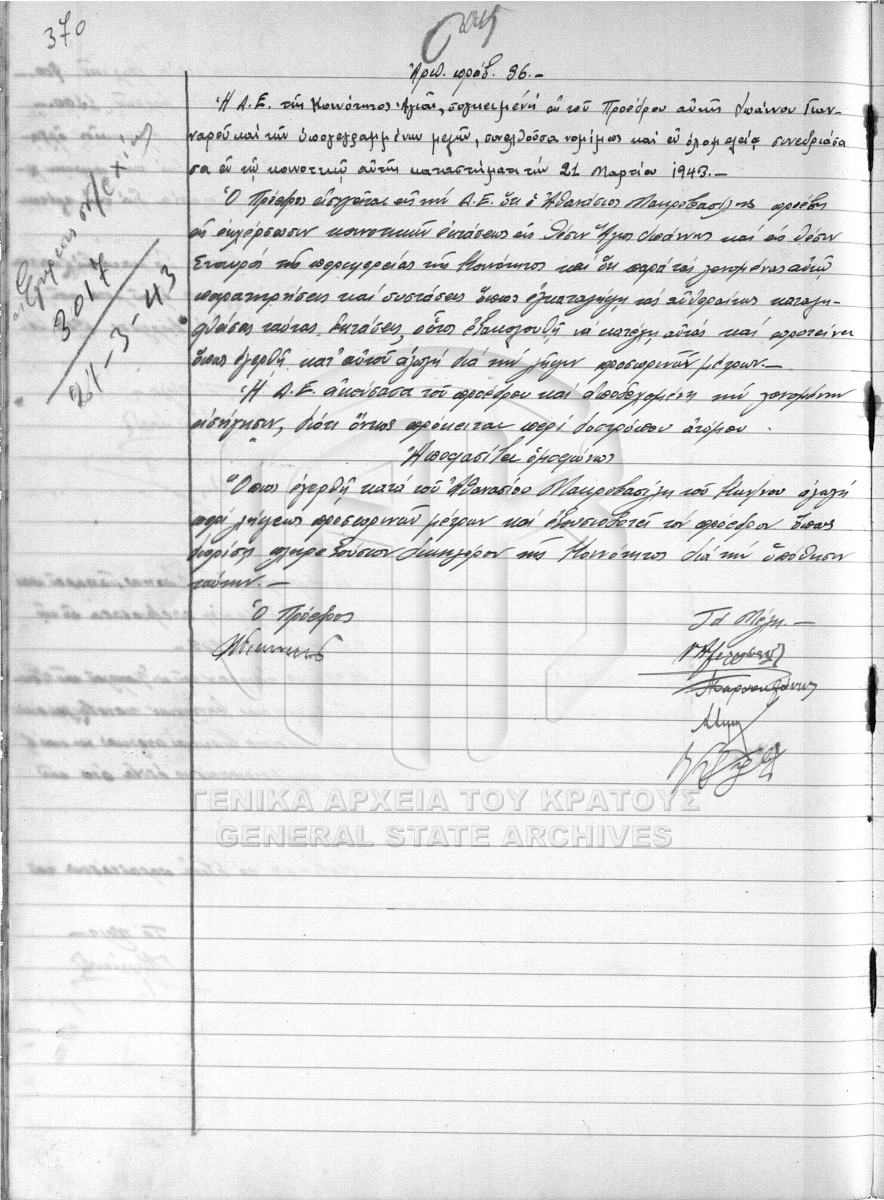 370
Αριθ. πράξ. 96.—
Ἡ Δ.Ε. τῆς Κοινότητος Ἁγιᾶς, συγκειμένη ἐκ τοῦ Προέδρου αὐτῆς Ἰωάννου Γιαν-
ναροῦ καὶ τῶν ὑπογεγραμμένων μελῶν, συνελθοῦσα νομίμως καὶ ἐν ὁλομελείᾳ συνεδριάσα
σα ἐν τῷ κοινοτικῷ αὐτῆς καταστήματι τὴν 21 Μαρτίου 1943.—
Ὁ Πρόεδρος εἰσηγεῖται εἰς τὴν Δ.Ε. ὅτι ὁ Ἀθανάσιος Μακροβασίλης προέβη
εἰς ἐκχέρσωσιν κοινοτικῶν ἐκτάσεως εἰς θέσιν Ἅγιος Ἰωάννης καὶ εἰς θέσιν
Σταυρος τῆς περιφερείας τῆς Κοινότητος καὶ ὅτι παρὰ τὰς γενομένας αὐτῷ
παρατηρήσεις καὶ συστάσεις ὅπως ἐγκαταλείψῃ τὰς αὐθαιρέτως καταλη-
φθείσας ταύτας ἐκτάσεις, οὗτος ἐξακολουθῆ νὰ κατέχῃ αὐτάς καὶ προτείνει
ὅπως ἐγερθῇ κατ' αὐτοῦ ἀγωγὴ διὰ τὴν λῆψιν προσωρινῶν μέτρων.—
Ἡ Δ.Ε. ἀκούσασα τοῦ προέδρου καὶ ἀποδεχομένη τὴν γενομένην
εἰσήγησιν, διότι ὄντως πρόκειται περὶ δυστρόπου ἀτόμου.
Ἀποφασίζει ὁμοφώνως
Ὅπως ἐγερθῇ κατὰ τοῦ Ἀθανασίου Μακροβασίλη τοῦ Κων/νου ἀγωγὴ
περὶ λήψεως προσωρινῶν μέτρων καὶ ἐξουσιοδοτεῖ τὸν πρόεδρον ὅπως
διορίσῃ πληρεξούσιον δικηγόρον τῆς Κοινότητος διὰ τὴν ὑπόθεσιν
ταύτην.—
Ὁ Πρόεδρος
Τὰ Μέλη.—
3017
21-3-43
ΓΕΝΙΚΑ ΑΡΧΕΙΑ ΤΟΥ ΚΡΑΤΟΥΣ
GENERAL STATE ARCHIVES